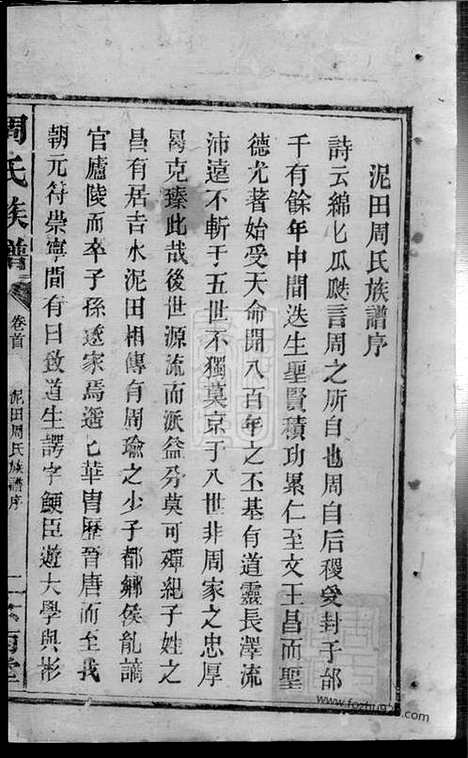 泥田周氏族譜序
詩云綿匕瓜瓞言周之所自也周自后稷受封于邰
千有餘年中間迭生聖賢積功累仁至文王昌而聖
德尤著始受天命開八百年之丕基有道靈長澤流
沛遠不斬于五世不獨莫京于八世非周家之忠厚
曷克臻此哉後世源流而派益分莫可殫紀子姓之
昌有居吉水泥田相傳有周瑜之少子都鄉侯胤謫
官廬陵而卒子孫遂家焉遥匕華胄歷晉唐而至我
朝元符崇寧間有曰敘道生諤字鯁臣遊大學與彬
周氏族譜
卷首
泥田周氏族譜序
www.fozhupu2.com